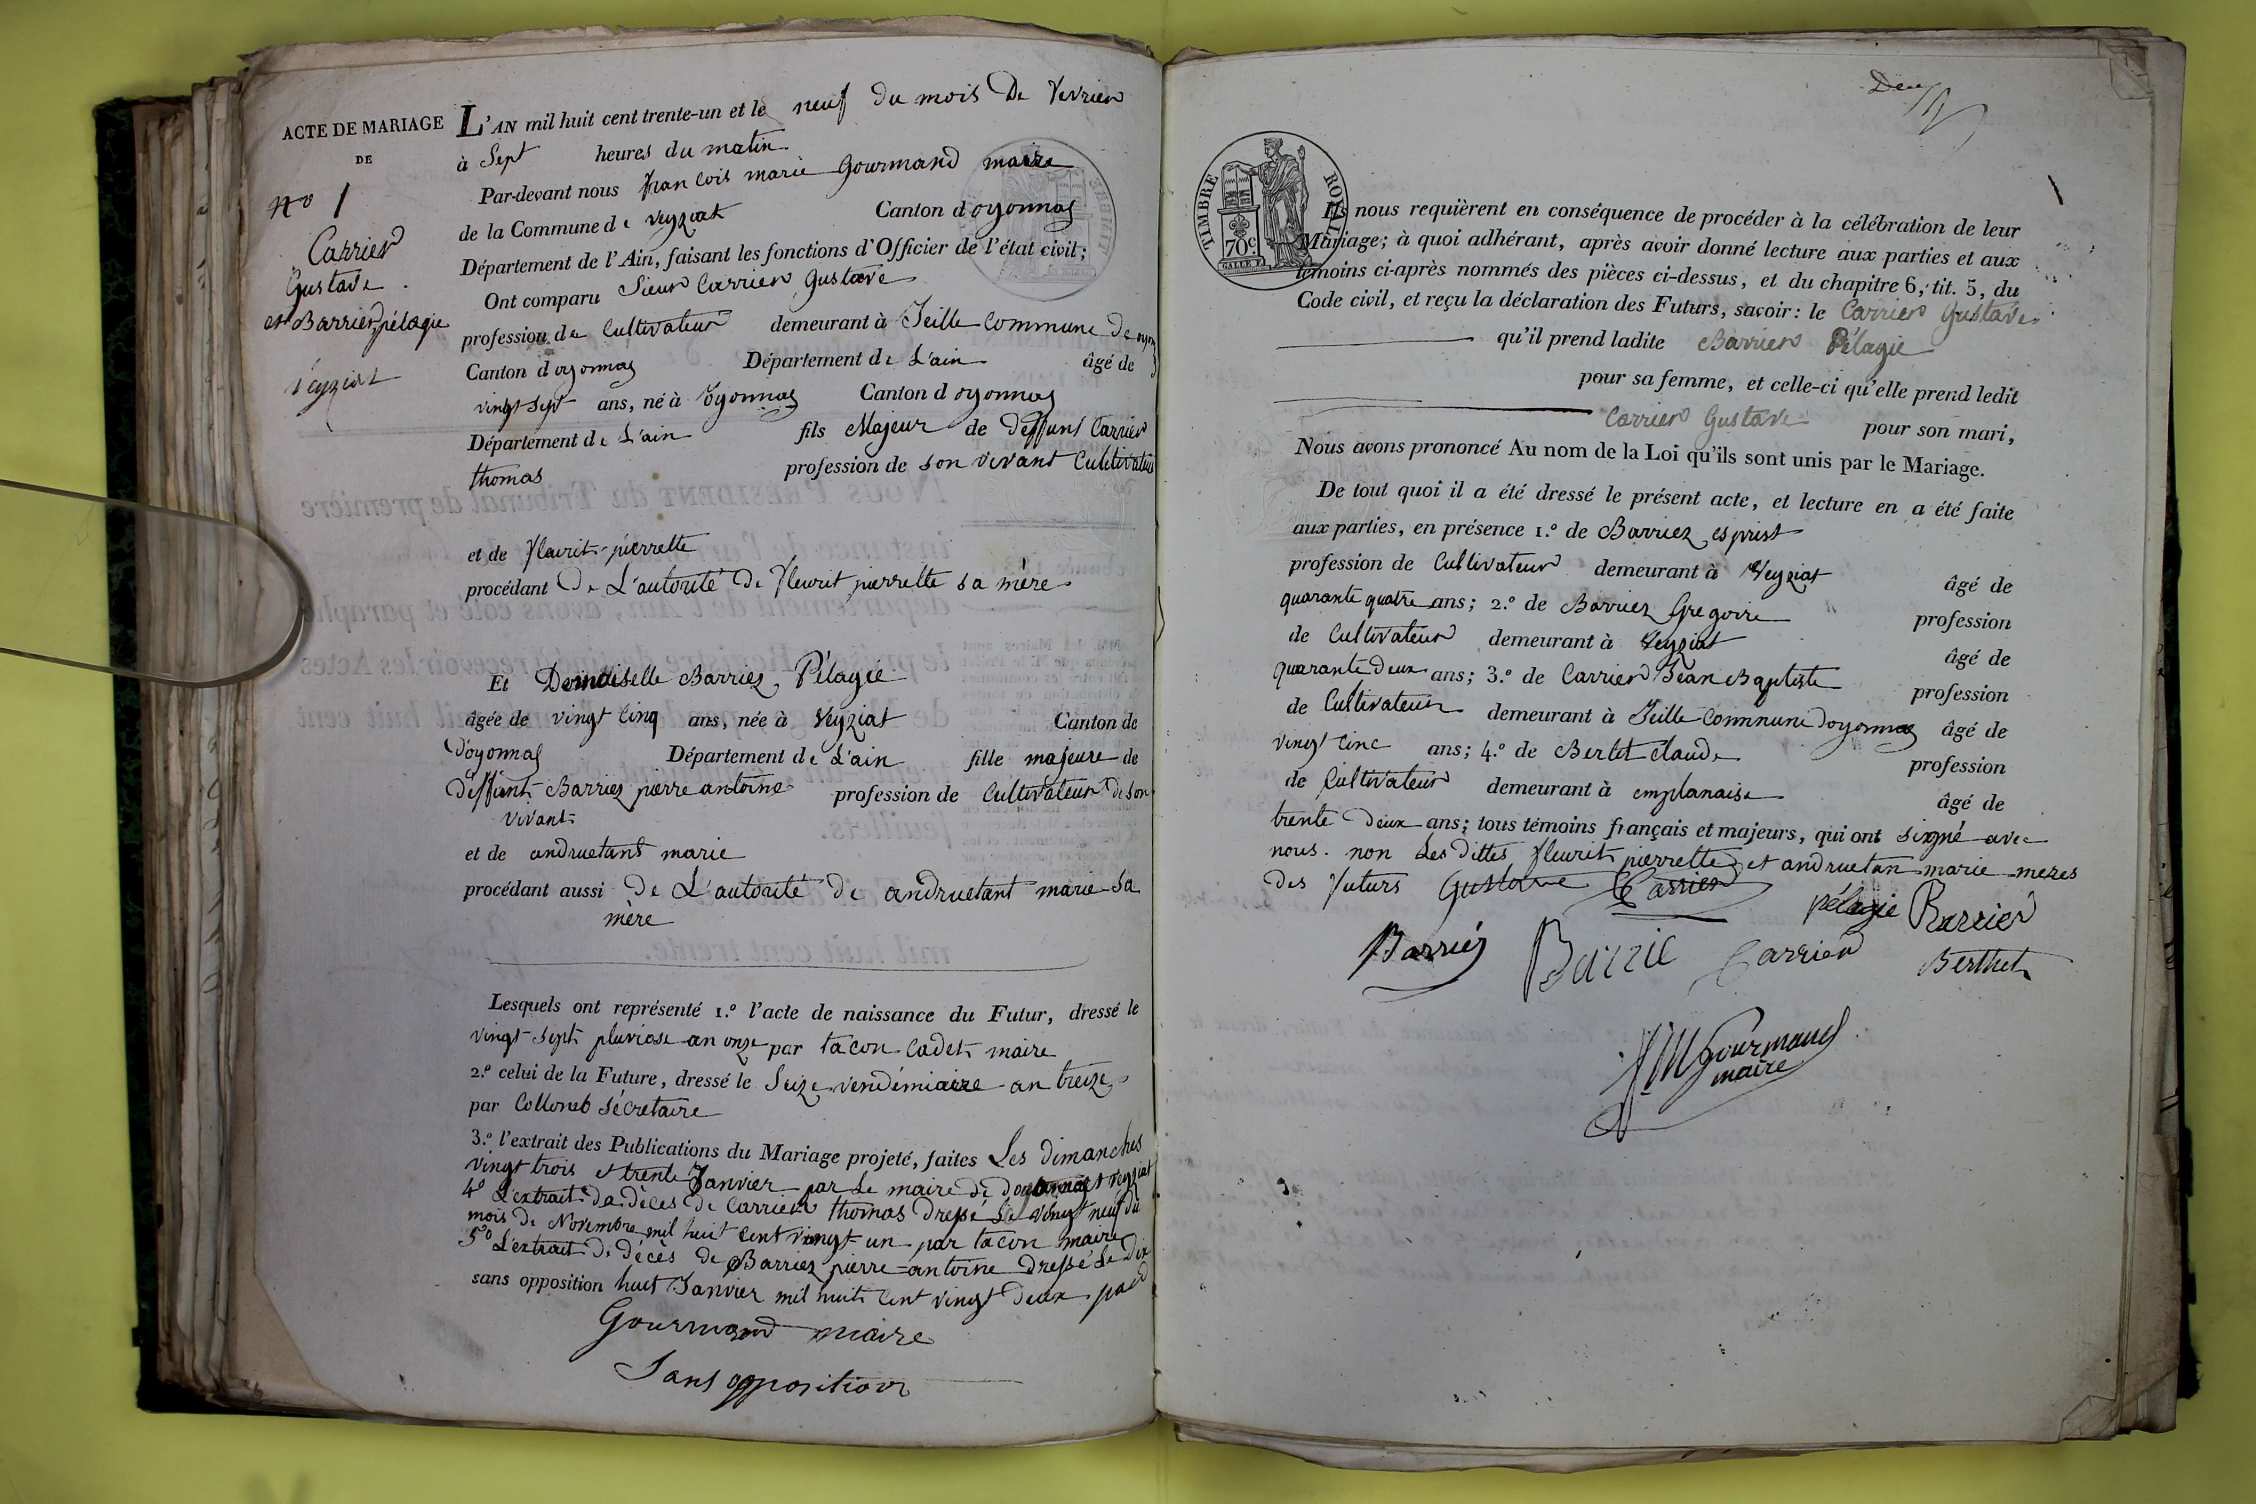 ACTE DE MARIAGE
DE
no 1
Carrier
Gustave
et Barriez pélagie
Veyziat
L'AN mil huit cent trente-un et le neuf du mois De Fevrier
à Sept heures du matin
Par-devant nous françois marie Gourmand maire
de la Commune de Veyziat Canton d'oyonnas
Département de l'Ain, faisant les fonctions d'Officier de l'état civil;
Ont comparu Sieur Carrier Gustave
profession de Cultivateur demeurant à Jeille Commune De
Canton d'oyonnas Département de L'ain âgé de
vingt sept ans, né à Oyonnas Canton d'oyonnas
Département de L'ain fils Majeur de Deffunt Carrier
thomas profession de son vivant Cultivateur
et de fleurit pierrette
procédant De L'autorité De fleurit pierrette sa mère
Et Demoiselle Barriez Pélagie
âgée de vingt Cinq ans, née à Veyziat Canton de
D'oyonnas Département de L'ain fille majeure de
Deffunt Barriez pierre antoine profession de Cultivateur De son
vivant
et de andruetant marie
procédant aussi De L'autorité De andruetant marie Sa
mère
Lesquels ont représenté 1.º l'acte de naissance du Futur, dressé le
vingt Sept pluviose an onze par tacon Cadet maire
2.º celui de la Future, dressé le Seize vendémiaire an treize
par Collomb Sécretaire
3.º l'extrait des Publications du Mariage projeté, faites Les dimanches
vingt trois et trente Janvier par Le maire de d'oyonnas et veyziat
4º L'extrait de dèces de Carrier thomas Dressé Le vingt neuf du
mois de Novembre mil huit Cent vingt un par tacon maire
5º L'extrait de décès de Barriez pierre antoine Dressé Le Dix
sans opposition huit Janvier mil huit Cent vingt Deux par
Gourmand maire
Sans opposition
TIMBRE ROYAL
70c
Ils nous requièrent en conséquence de procéder à la célébration de leur
Mariage; à quoi adhérant, après avoir donné lecture aux parties et aux
témoins ci-après nommés des pièces ci-dessus, et du chapitre 6, tit. 5, du
Code civil, et reçu la déclaration des Futurs, savoir: le Carrier Gustave
qu'il prend ladite Barrier Pélagie
pour sa femme, et celle-ci qu'elle prend ledit
Carrier Gustave pour son mari,
Nous avons prononcé Au nom de la Loi qu'ils sont unis par le Mariage.
De tout quoi il a été dressé le présent acte, et lecture en a été faite
aux parties, en présence 1.º de Barriez esprist
profession de Cultivateur demeurant à Veyziat âgé de
quarante quatre ans; 2.º de Barriez Gregoire profession
de Cultivateur demeurant à Veyziat âgé de
quarante Deux ans; 3.º de Carrier Jean Baptiste profession
de Cultivateur demeurant à Jeille Commune D'oyonnas âgé de
vingt Cinc ans; 4.º de Bertet Claude profession
de Cultivateur demeurant à emplanaise âgé de
trente Deux ans; tous témoins français et majeurs, qui ont signé avec
nous. non Les Dittes fleurit pierrette et andruetan marie meres
Des futurs Gustave Carrier
pélagie Barrier
Barriéz Barrie Carrier Berthet
fM Gourmand
maire